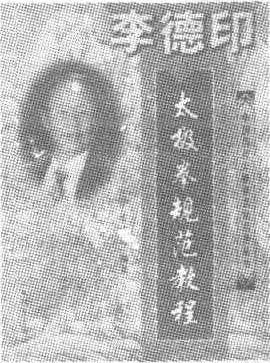 李德印
太极拳规范教程